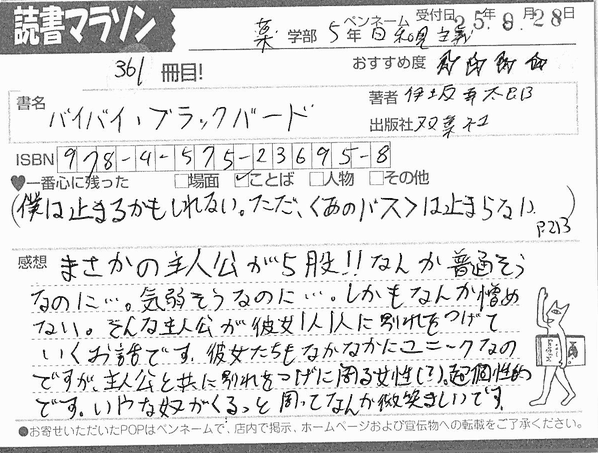 読書マラソン
薬 学部 5年 ペンネーム 日和見主義 受付日 25年 8月 28日
361 冊目!
おすすめ度 ★★★★
書名 バイバイ、ブラックバード
著者 伊坂幸太郎
出版社 双葉社
ISBN 978-4-575-23695-8
♥一番心に残った □場面 ☑ことば □人物 □その他
(僕は止まるかもしれない。ただ、〈あのバス〉は止まらない P.213)
感想 まさかの主人公が5股!!なんか普通そう
なのに…。気弱そうなのに…。しかもなんか憎め
ない。そんな主人公が彼女1人1人に別れをつげて
いくお話です。彼女たちもなかなかにユニークなの
ですが、主人公と共に別れをつげに周る女性(?)。超個性的
です。いやな奴がくるっと周ってなんか微笑ましいです。
●お寄せいただいたPOPはペンネームで、店内で掲示、ホームページおよび宣伝物への転載をご了承ください。